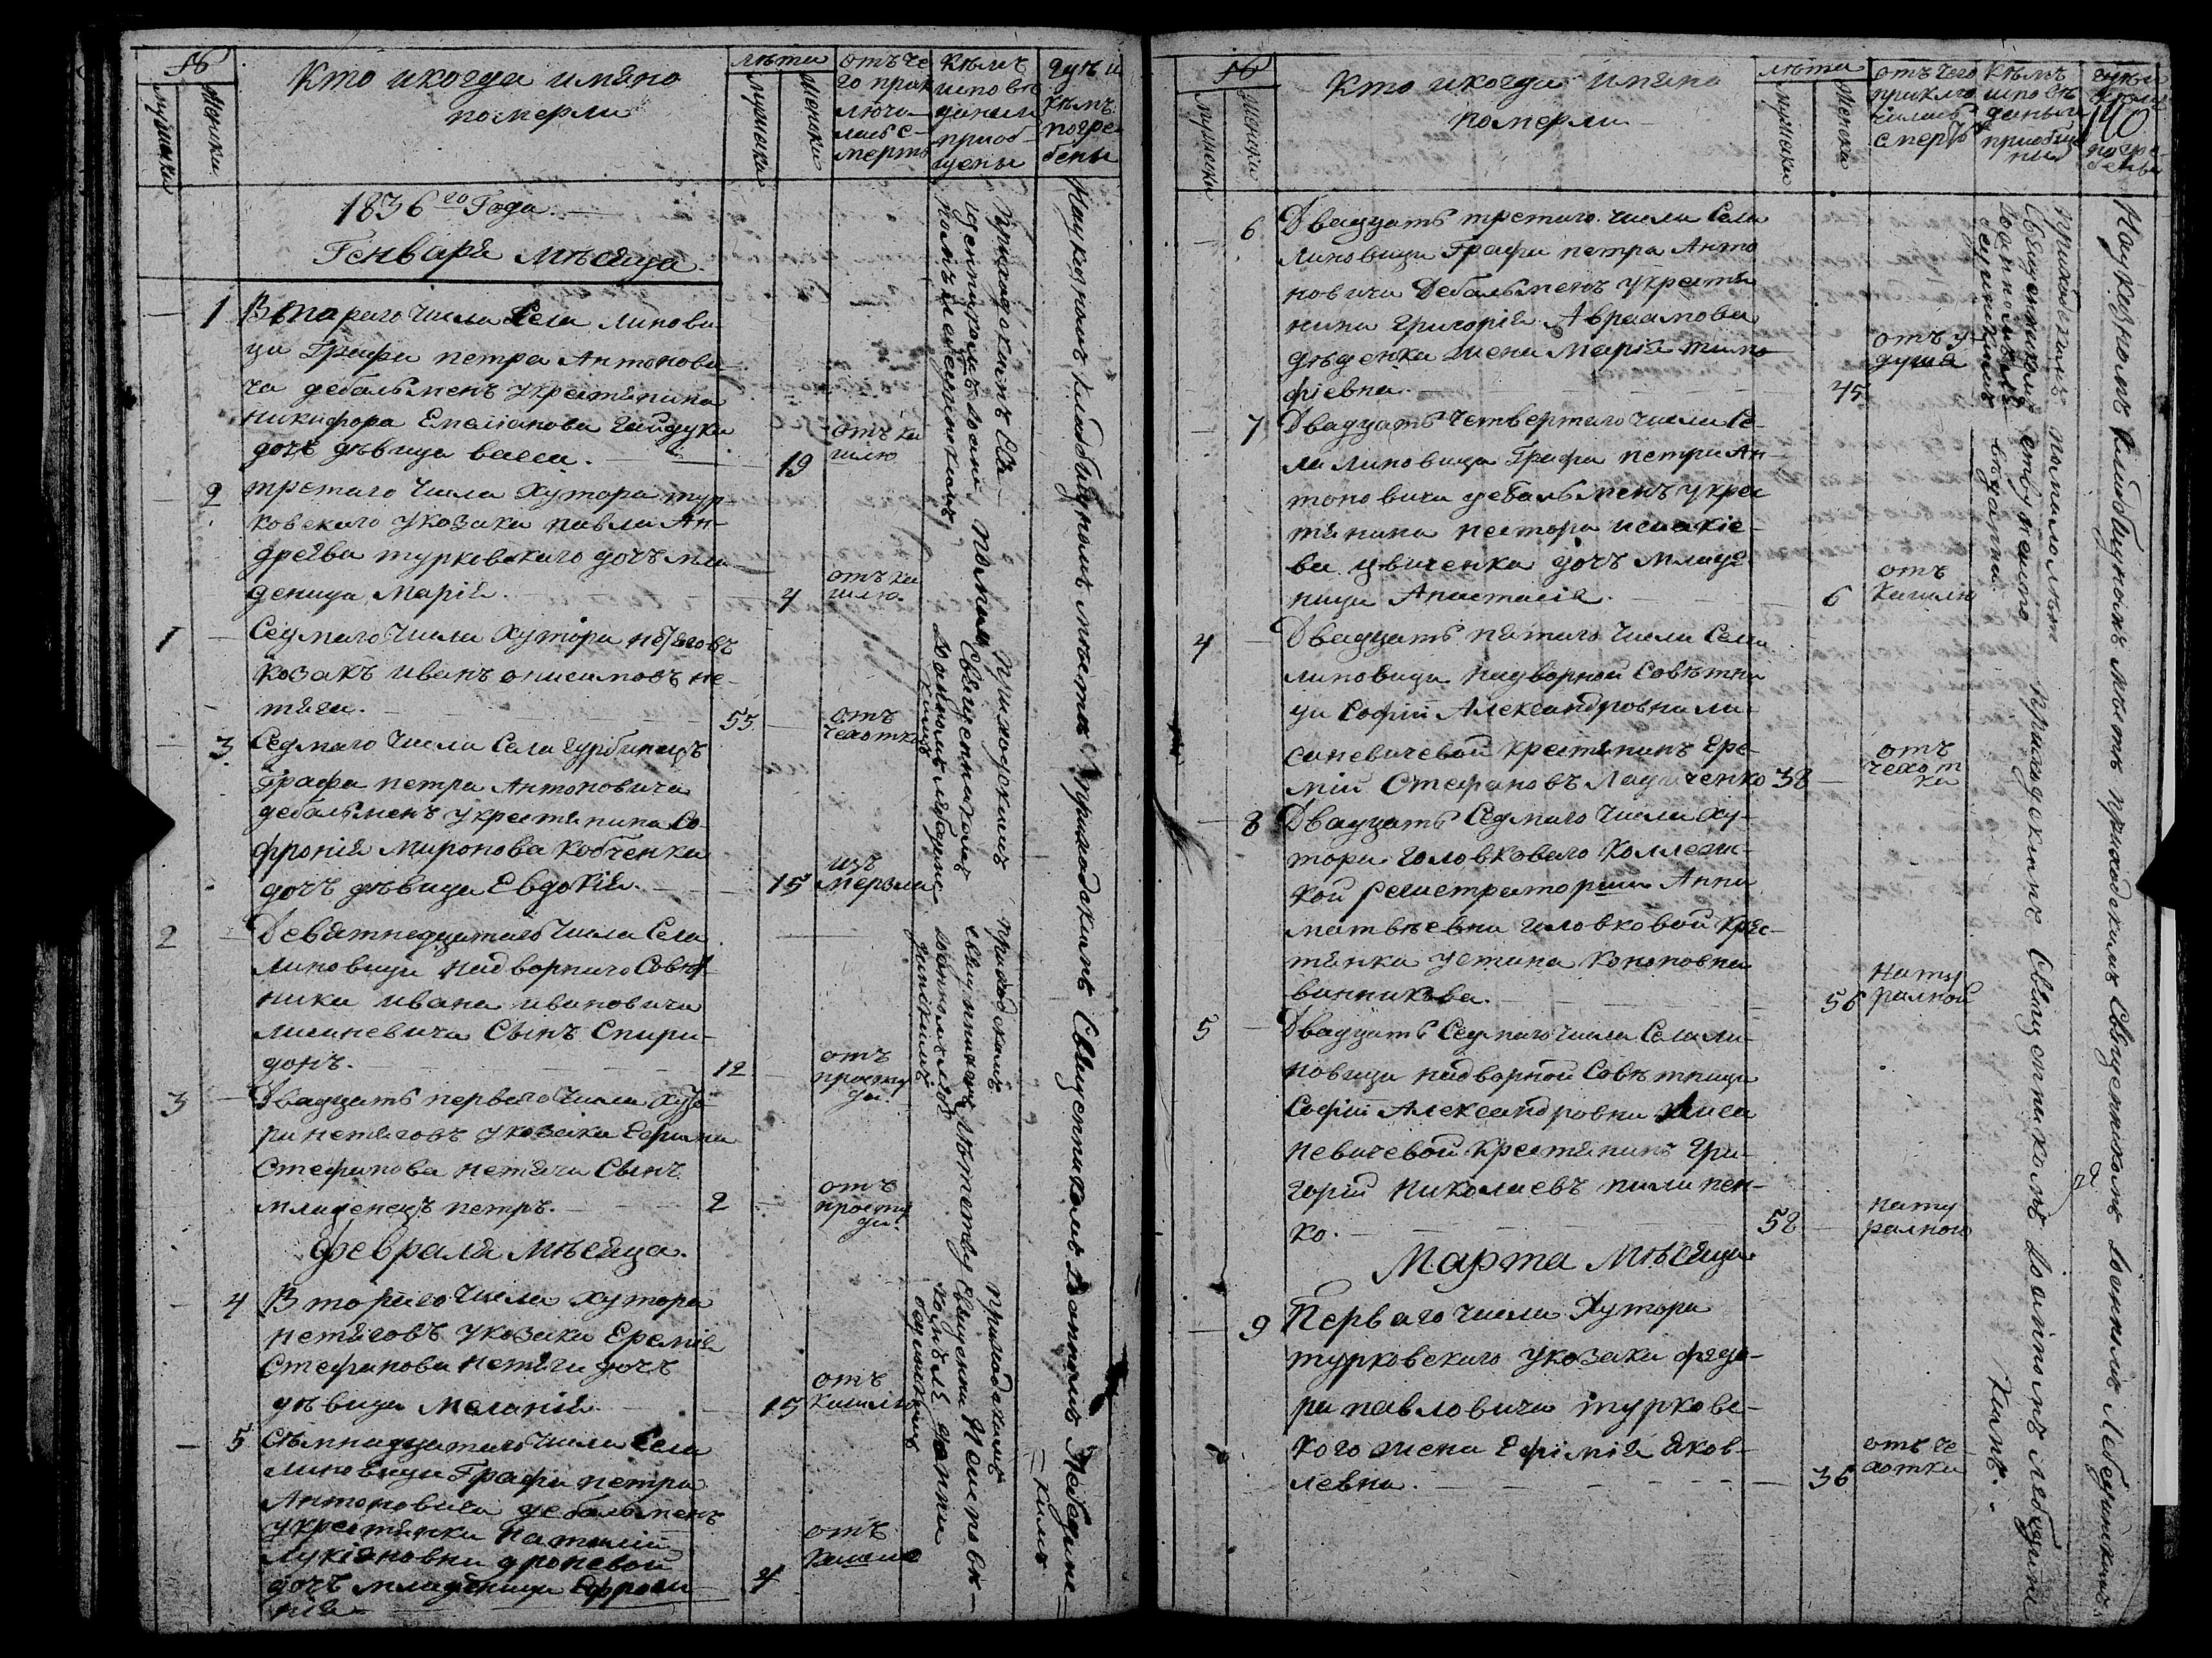 №
мужски
женски
Кто и когда имяно
померли
лѣта
мужски
женски
отъ че
го прик
лючи
лась с
мерть
кѣмъ
исповѣ
даны и
приоб
щены
гдѣ и
кѣмъ
погре
бены
1836го Года.
Генваря мѣсяца.
1 Втораго числа Села Линови
ци Графа петра Антонови
ча дебальменъ укрестянина
никифора Емеліанова Гайдука
дочь дѣвица васса. 19 отъ ка
шлю
2 третаго числа Хутора тур
ковского укозака павла Ан
дреева турковского дочъ мла
деница Марія. 4 отъ ка
шлю.
1 Седмаго числа Хутора нетяговъ
козакъ иванъ онисимовъ не
тяга. 55 отъ
чехотки
3 Седмаго числа Села гурбинецъ
Графа петра Антоновича
дебальменъ укрестянина Со
фронія Миронова Кобченка
дочъ дѣвица Евдокія. 15 изъ
мерзла
2 Девятнедцатаго числа Села
Линовици надворнаго Совет
ника ивана ивановича
лисиневича Сынъ Спири
донъ. 12 отъ
просту
ди.
3 Двадцать первого числа Хуто
ра нетяговъ укозака
Стефанова нетяги Сынъ
младенецъ петръ. 2 отъ
просту
ди.
Февраля мѣсяца.
4 Втораго числа хутора
нетяговъ укозака Еремія
Стефанова нетяги дочъ
дѣвица Меланія 15 отъ
кашлю
5 Семнадцатаго числа Села
Линовици Графа петра
Антоновича дебальменъ
укрестянки наталіи
Лукіяновни дроневой
дочъ младеница Ефроси
нія 4 отъ
кашлю
приходскимъ
Священникомъ
На Кладбищномъ мѣсте приходскимъ Священникомъ Іоанномъ Лебединс
кимъ
№
мужски
женски
Кто и когда имяно
померли
лѣта
мужски
женски
отъ чего
приклю
чилась
смерть
кѣмъ
исповѣ
даны и
приобще
ны
140
погре
бены
6 Двадцать третаго числа Села
Линовици Графа петра Анто
новича Дебальменъ укрестя
нина григорія Авраамова
дѣденка жена Марія тимо
фіевна. 45 отъ у
душя
7 Двадцать четвертаго числа Се
ла Линовици Графа петра Ан
тоновича дебальменъ укрес
тянина нестора исакіе
ва цвиченка дочъ младе
ница Анастасія. 6 отъ
кашлю
4 Двадцать пятаго числа Села
линовици надворной Совѣтни
ци Софіи Александровни ли
синевичевой крестянинъ Ере
мій Стефановъ Ладиченко 38 отъ
чехот
ки
8 Двадцать Седмаго числа Ху
тора головкового коллегс
кой регистраторши Анни
матвѣевни головковой крес
тянка устина кононовна
винникова. 56 нату
ралной
5 Двадцать Седмаго числа Села ли
новици надворной Совѣтници
Софіи Александровни лиси
невичевой крестянинъ Гри
горій николаевъ пилипен
ко. 58 нату
ралною
Марта Мѣсяца
9 Перваго числа Хутора
турковского укозака феде
ра павловича турковс
кого жена Ефимія яков
левна. 36 отъ че
хотки
На Кладбищномъ мѣсте приходскимъ Священникомъ Іоанномъ Лебединскимъ
приходскимъ Священникомъ Іоанномъ Лебединс
кимъ.